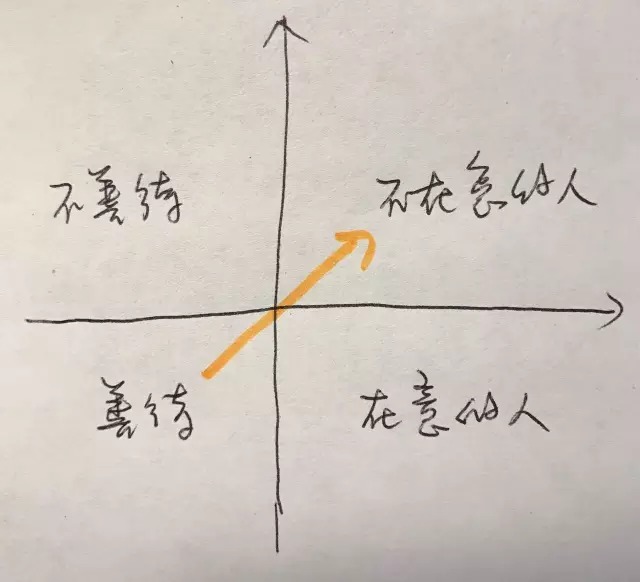 不善待
不在意的人
善待
在意的人